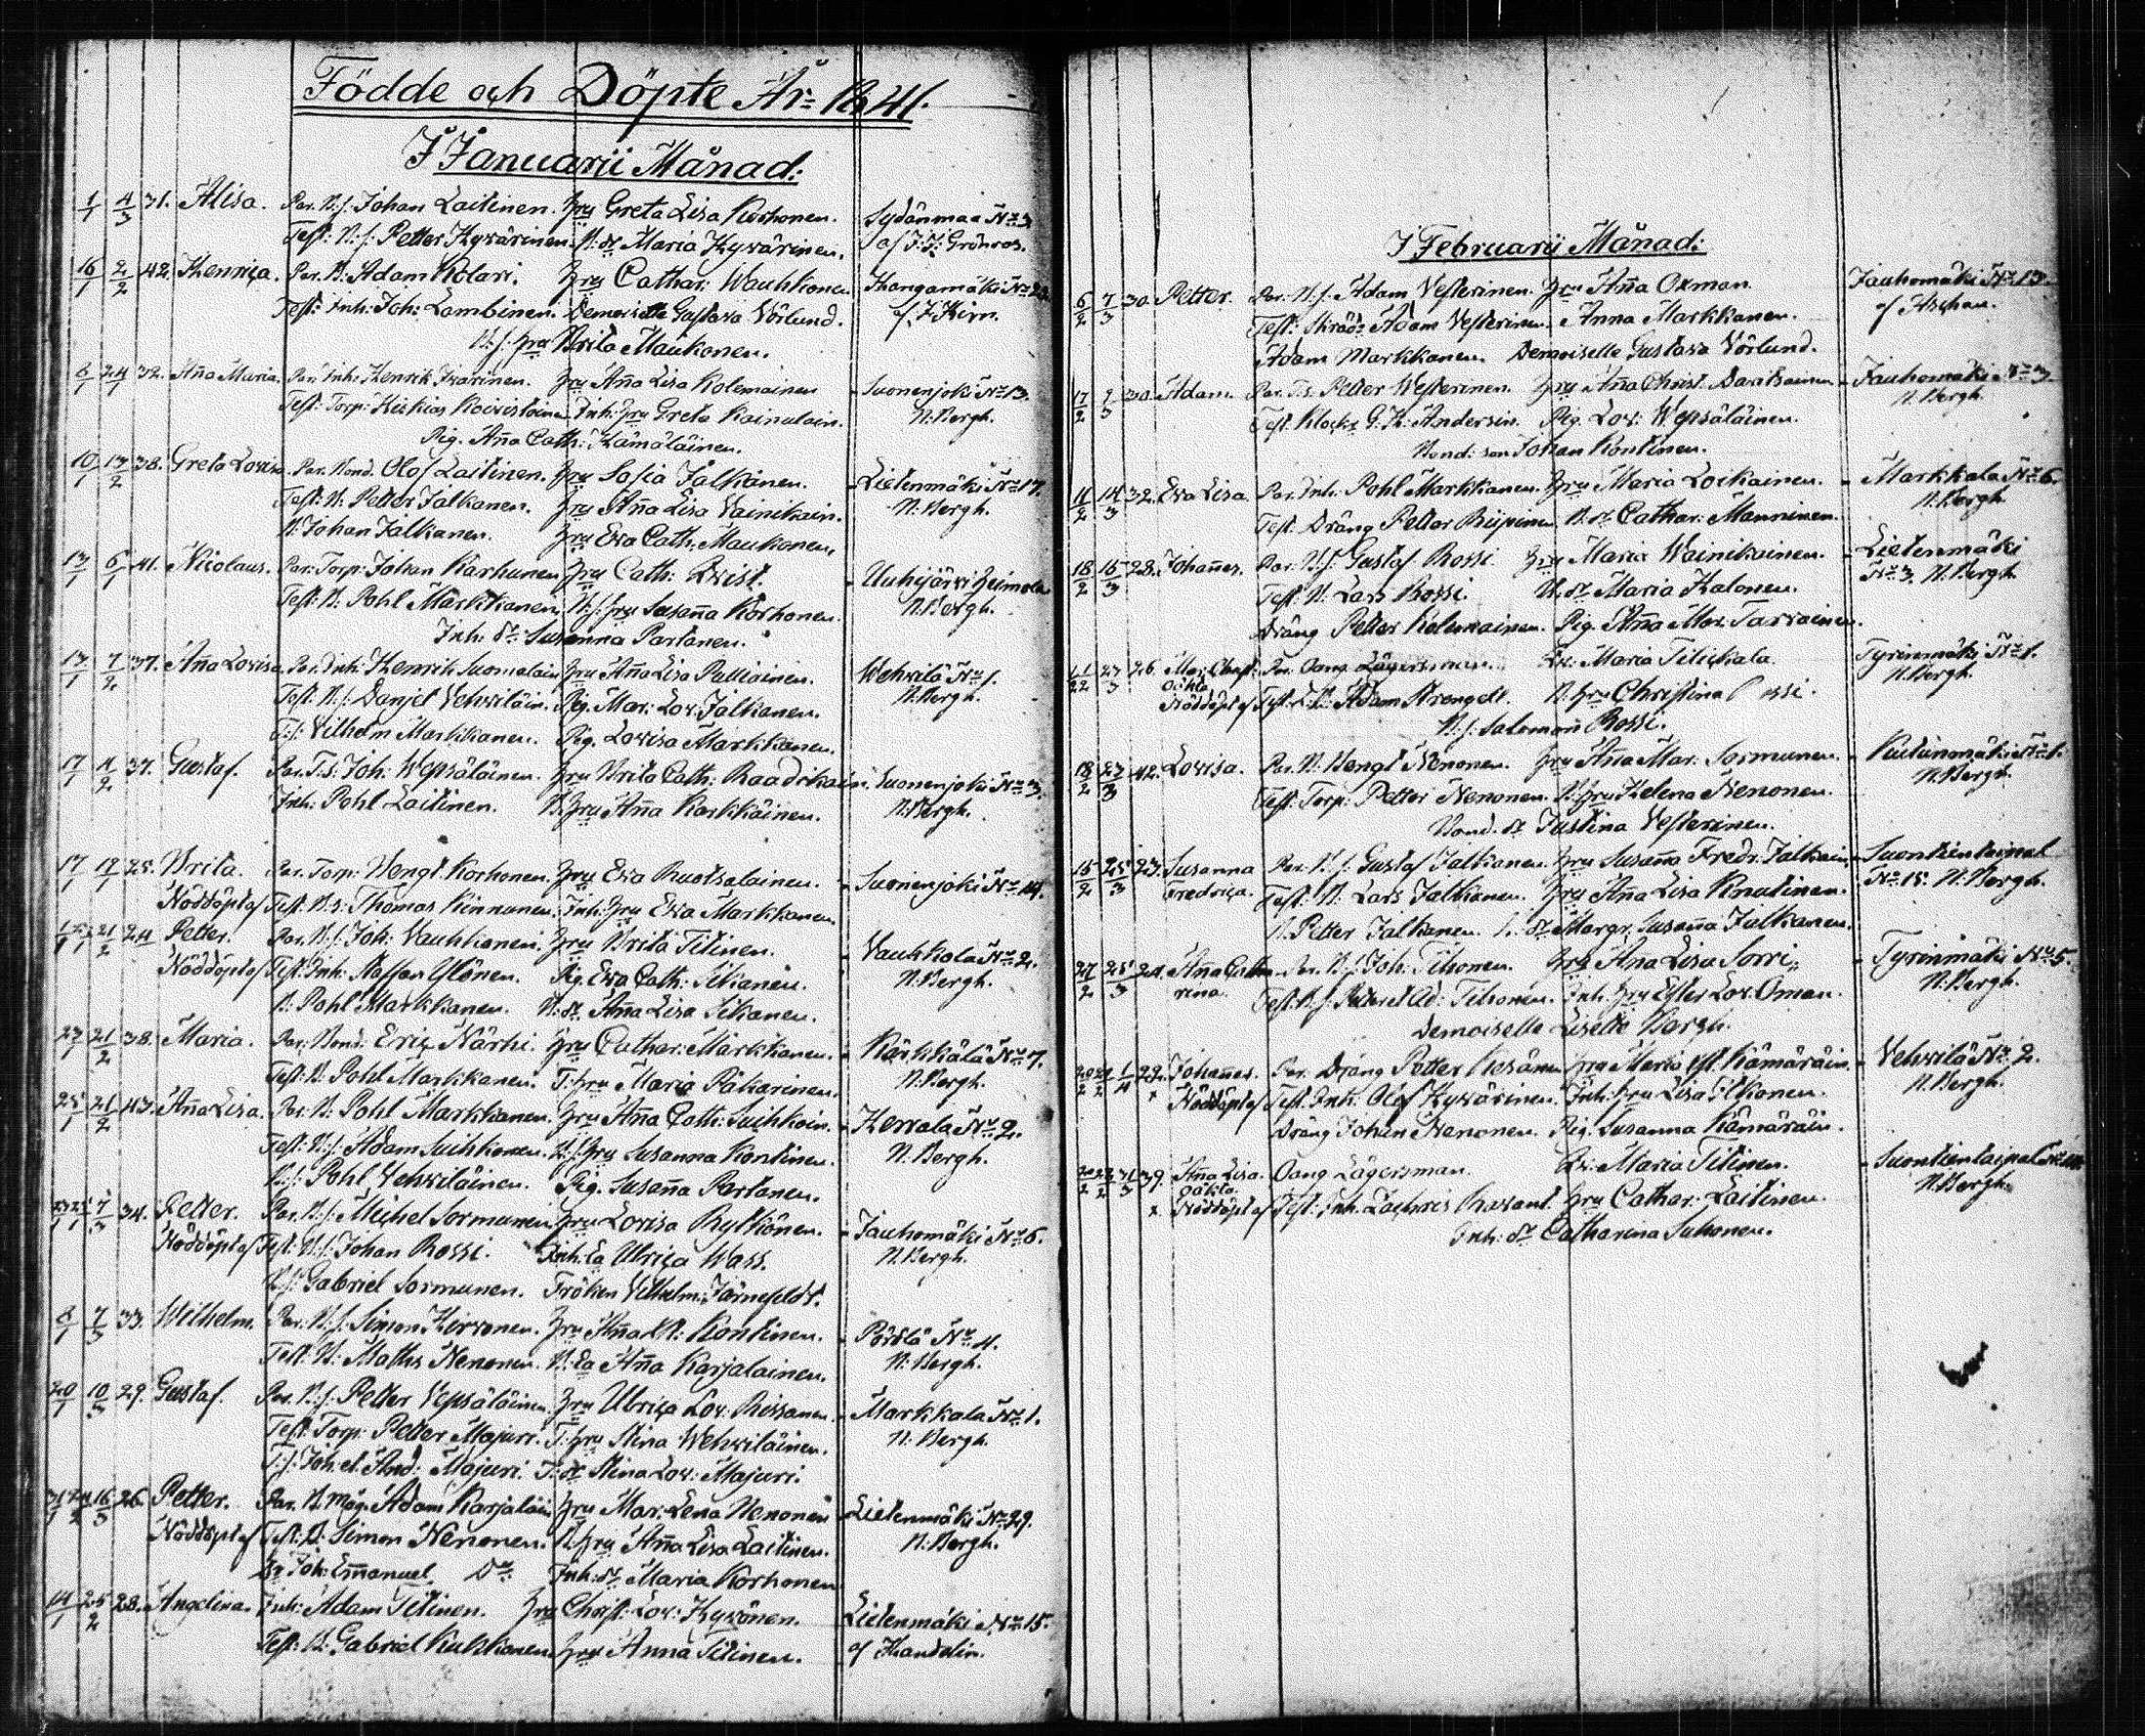 Födde och Döpte År 1841.
I Januarii Månad:
1/1 4/3 31. Alisa. Par. B.s: Johan Laitinen. Hru Greta Lisa Korhonen. Sydänmaa No 3
Test: B.s: Petter Hyvärinen. B. dr Maria Hyvärinen. af J: J: Grönroos.
16/1 2/2 42. Henrica. Par. B. Adam Kolari. Hru Cathar: Wauhkonen Kangamäki No
Test: Inh: Joh: Lambinen. Demoiselle Gustava Vörlund. af J. Hirn.
B.s: hru Brita Maukonen.
8/1 24/1 32. Aña Maria. Par. Inh: Henrik Ikärinen. Hru Aña Lisa Kolemainen Suonenjoki No 13.
Test: Torp: Hiskias Koivistoinen Inh: Hru Greta Kainulain. N. Bergh.
Pig. Aña Cath: Hämäläinen.
10/1 13/2 38. Greta Lovisa Par. Bond. Olof Laitinen. Hru Sofia Jalkanen. Lietenmäki No 17.
Test: B. Petter Jalkanen. Hru Aña Lisa Vainikain. N. Bergh.
B. Johan Jalkanen. Hru Eva Cath. Maukonen.
13/1 6/1 41. Nicolaus. Par: Torp: Johan Karhunen Hru Cath: Kvist. Uuhijärvi
Test: B. Pohl Markkanen B.s: hru Susaña Korhonen. N. Bergh.
Inh: dr Susanna Partanen.
13/1 7/2 37. Aña Lovisa Par. Inh: Henrik Suomalain Hru Aña Lisa Pulliainen. Wehvilä No 1.
Test. B.s: Danjel Vehviläin. Pig. Mar: Lov: Jalkanen. N. Bergh.
T.s: Vilhelm Markkanen. Pig. Lovisa Markkanen.
17/1 11/2 37. Gustaf. Par. T.s: Joh: Wepsäläinen. Hru Brita Cath: Raadikain. Suonenjoki No 3.
Inh: Pohl Laitinen. B. hru Aña Karkkäinen. N. Bergh.
17/1 25. Brita. Par. Torp: Bengt Korhonen. Hru Eva Ruotsalainen. Suonenjoki No 14.
Nöddöpt af Test. B.s: Thomas Kinnunen. Inh: Hru Eva Markkanen
21/2 24 Petter. Par. B.s: Joh: Vauhkonen. Hru Brita Titinen. Vauhkola No 2.
Nöddöpt af Test. Inh: Staffan Ylönen. Pig. Eva Cath: Sikanen. N. Bergh.
B. Pohl Markkanen. B. dr Aña Lisa Sikanen.
23/1 21/2 38. Maria. Par. Bond. Eric Närhi. Hru Cathar: Markkanen. Kärkkälä No 7.
Test: B. Pohl Markkanen. T: hru Maria Pakarinen. N. Bergh.
25/1 21/2 43. Aña Lisa. Par. B: Pohl Markkanen. Hru Aña Cath: Suihkoin. Hervala No 2.
Test: B.s: Adam Suihkonen. B.s: hru Susanna Kontinen. N. Bergh.
B.s: Pohl Vehviläinen. Pig. Susaña Partanen.
7/3 34. Petter. Par. B.s: Michel Sormunen Hru Lovisa Rytkönen. Jauhomäki No 6.
Nöddöpt af Test: B.s: Johan Rossi. Inh: Ea Ulrica Wass. N. Bergh.
B.s: Gabriel Sormunen. Fröken Vilhelm: Järnefeldt.
8/1 7/3 33. Wilhelm. Par: B.s: Simon Hirvonen. Hru Aña Kontinen. Pörölä No 4.
Test. B. Matts Nenonen. B. Ea Aña Karjalainen. N. Bergh.
20/1 10/3 29. Gustaf. Par. B.s: Petter Vepsäläinen. Hru Ulrica Lov: Rissanen. Markkala No 1.
Test. Torp: Petter Majuri. T: hru Stina Wehviläinen. N. Bergh.
T.s: Joh: et And: Majuri. T: dr Stina Lov: Majuri.
16/3 26. Petter. Par. B. måg. Adam Karjalain Hru Mar: Lena Nenonen Lietenmäki No 29.
Nöddöpt af Test. B. Simon Nenonen. B. hru Aña Lisa Laitinen. N. Bergh.
Joh: Emanuel Do Inh: dr Maria Korhonen
14/1 25/2 28. Angelina. Inh: Adam Titinen. Hru Christ: Lov: Hyvönen. Lietenmäki No 15.
Test. B. Gabriel Kukkonen. Hru Anna Titinen. af Handolin.
I Februarii Månad:
6/2 7/3 30. Petter. Par. B.s: Adam Vesterinen. Hru Aña Oxman. Jauhomäki No 13.
Test: Skrädd: Adam Vesterinen. Anna Markkanen. af Aschan.
Adam Markkanen. Demoiselle Gustava Vörlund.
17/2 9/3 30. Adam. Par. T.s: Petter Westerinen. Hru Aña Christ. Jauhomäki No 3.
Test. Klock: G. H. Andersin. Pig. Lov: Wepsäläinen. N. Bergh.
Bond: son Johan Kontinen.
11/2 14/3 32. Eva Lisa Par. Inh: Pohl Markkanen. Hru Maria Loikainen. Markkala No 6.
Test. Dräng Petter Riipinen B. dr Cathar: Manninen. N. Bergh.
18/2 15/3 28. Johañes. Par. B.s: Gustaf Rossi. Hru Maria Wainikainen. Lietenmäki
Test. B. Lars Rossi. B. dr Maria Halonen. No 3. N. Bergh
Dräng Petter Kolemainen. Pig. Aña Mar. Tarvainen.
23/3 26 Mar: Christ: Par. Oang Lägersman. Maria Titiskala Tyrinmäki No 1.
oäkta Nöddöpt af Test. Adam Strengell. B. hru Christina Rossi. N. Bergh.
B.s: Salomon Rossi.
18/2 23/3 42. Lovisa. Par. B. Bengt Nenonen. Hru Aña Mar: Sormunen. Kutunmäki No 1.
Test. Torp: Petter Nenonen. B. hru Helena Nenonen. N. Bergh.
Bond. dr Justina Vesterinen.
15/2 25/3 23. Susanna Par. B.s: Gustaf Jalkanen. Hru Susaña Fredr. Jalkain Suontientaipal
Fredrica. Test. B. Lars Jalkanen. Hru Aña Lisa Knutinen. No 15. N. Bergh.
B. Petter Jalkanen. dr Margr. Susaña Jalkanen.
27/2 25/3 24. Aña Catha Par. B.s: Joh: Tihonen. Hru Ana Lisa Sorri. Tyrinmäki No 5.
rina. Test. B.s: Petter et Ad: Tihonen. Inh. hru Ester Lov: Oman. N. Bergh.
Demoiselle Lisette Bergh.
1/4 22. Johañes. Par. Dräng Petter Hru Maria Kämäräin. Vehvilä No 2.
Nöddöpt af Test. Inh: Olof Hyvärinen. Inh: hru Lisa Ilkonen. N. Bergh.
Dräng Johan Nenonen. Pig. Susanna Kämäräin.
31/3 39. Aña Lisa. Oang Lägersman. Maria Titinen. Suontientaipal
oäkta Nöddöpt af Test: Inh. Zachris Hru Cathar: Laitinen. N. Bergh.
Inh: dr Catharina Suhonen.